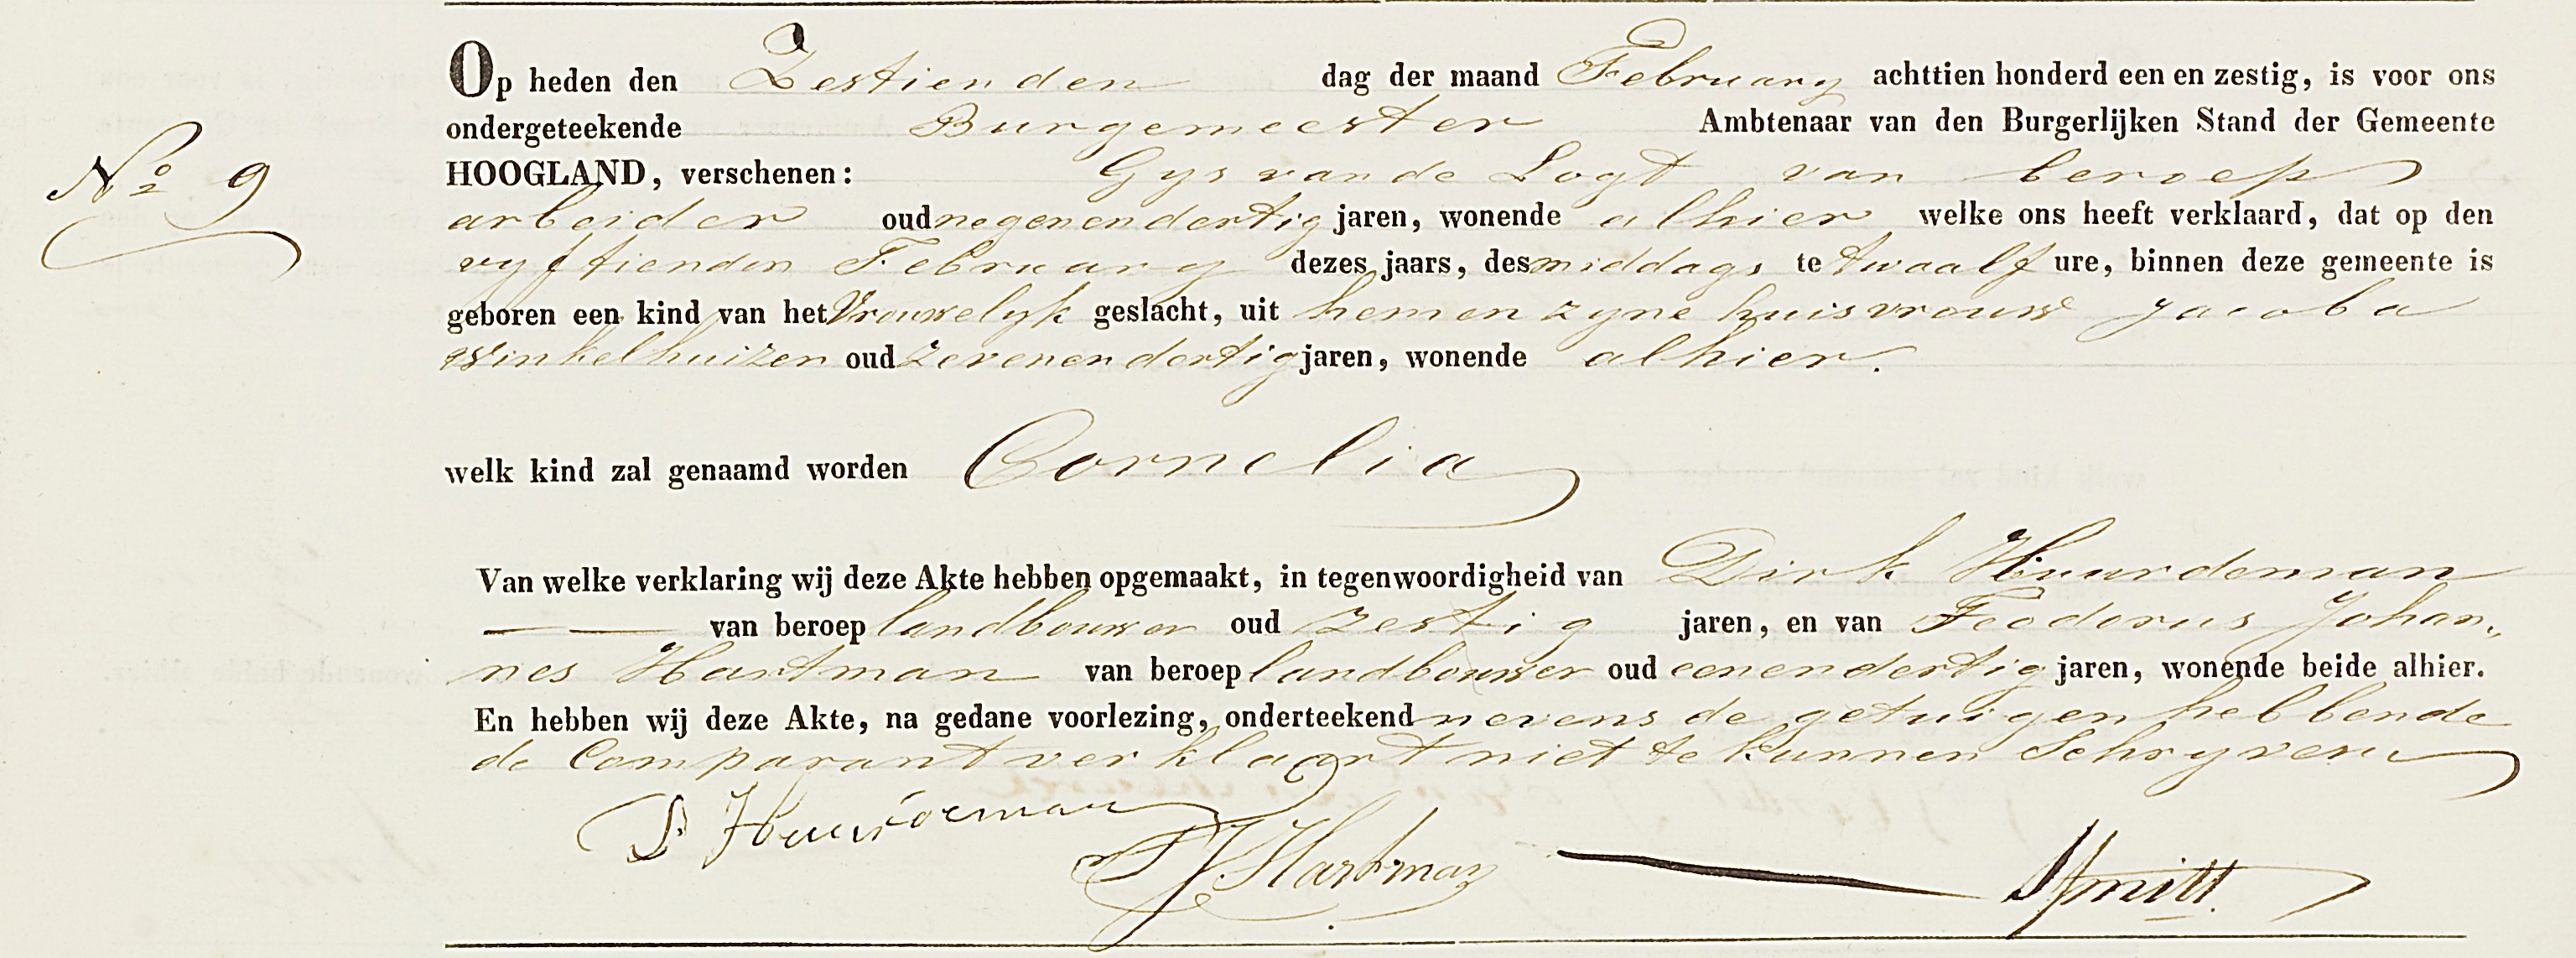 Op heden den Zestienden dag der maand February achttien honderd een en zestig, is voor ons
ondergeteekende Burgemeester Ambtenaar van den Burgerlijken Stand der Gemeente
No 9
HOOGLAND, verschenen: Gys van de Logt van beroep
arbeider oud negenendertig jaren, wonende alhier welke ons heeft verklaard, dat op den
vyftienden February dezes jaars, des middags te twaalf ure, binnen deze gemeente is
geboren een kind van het Vrouwelyk geslacht, uit hem en zyne huisvrouw Jacoba
Winkelhuizen oud zevenendertig jaren, wonende alhier.
welk kind zal genaamd worden Cornelia
Van welke verklaring wij deze Akte hebben opgemaakt, in tegenwoordigheid van Dirk Huurdeman
van beroep landbouwer oud zestig jaren, en van Feodorus Johan„
nes Hartman van beroep landbouwer oud eenendertig jaren, wonende beide alhier.
En hebben wij deze Akte, na gedane voorlezing, onderteekend nevens de getuigen hebbende
de Comparant verklaart niet te kunnen Schryven
D Huurdeman
FJ Hartman